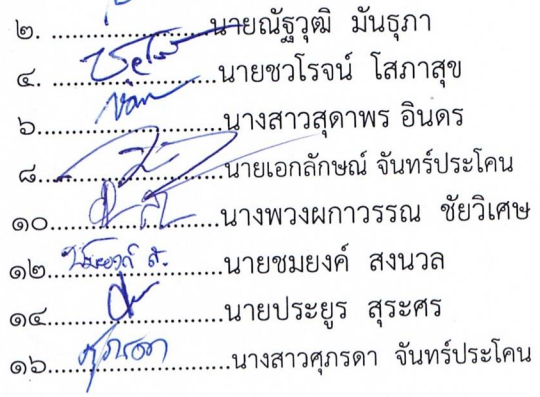 ๒. ........................นายณัฐวุฒิ มันธุภา
๔. ........................นายชวโรจน์ โสภาสุข
๖...........................นางสาวสุดาพร อินดร
๘...........................นายเอกลักษณ์ จันทร์ประโคน
๑๐.........................นางพวงผกาวรรณ ชัยวิเศษ
๑๒.........................นายชมยงค์ สงนวล
๑๔.........................นายประยูร สุระศร
๑๖.........................นางสาวศุภรดา จันทร์ประโคน